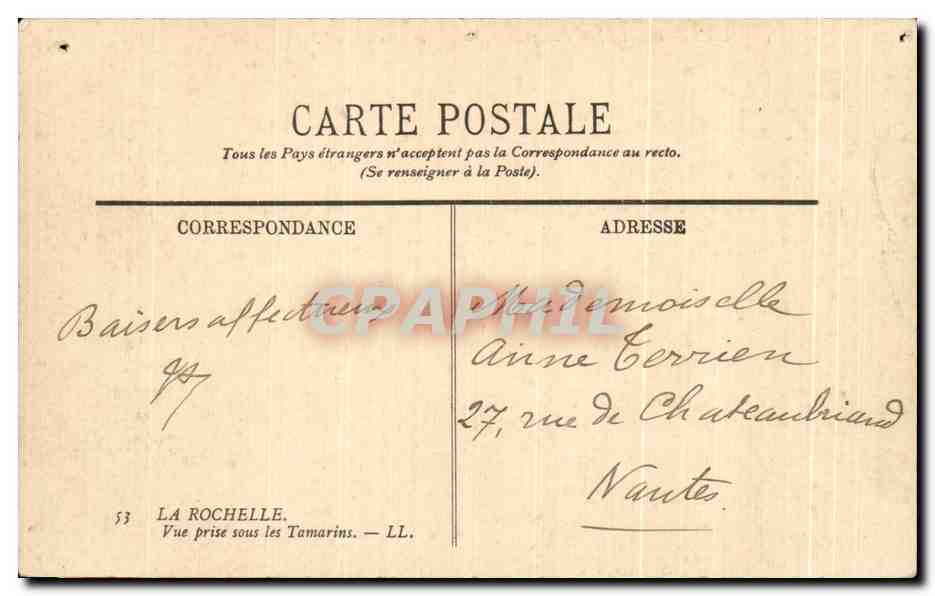 CARTE POSTALE
Tous les Pays étrangers n'acceptent pas la Correspondance au recto.
(Se renseigner à la Poste).
CORRESPONDANCE
Baisers affectueux
53 LA ROCHELLE.
Vue prise sous les Tamarins. — LL.
ADRESSE
Mademoiselle
Anne Terrien
27, rue de Chateaubriand
Nantes
CPAPHIL